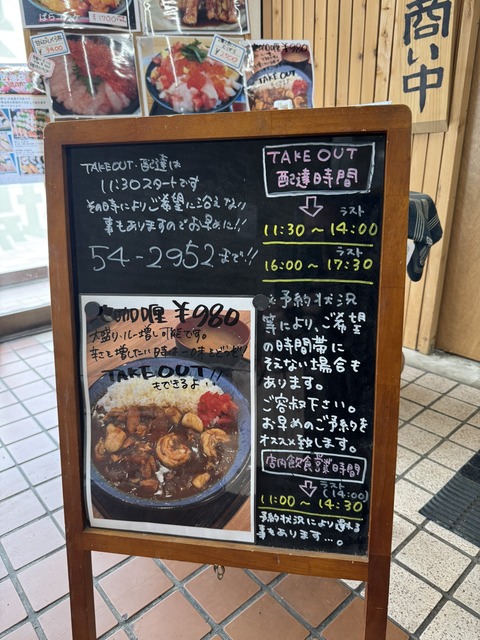 商い中
ばらコ
¥1700
¥3400
¥2500
¥980
TAKE OUT
TAKE OUT・配達は
11:30スタートです
その日時によりご希望に沿えない
事もありますのでお早めに!!
54-2952まで!!
咖喱 ¥980
大盛り、ルー増し可能です。
辛さを増したい時は一味をどうぞ!
TAKE OUT!!
もできるよ
TAKE OUT
配達時間
ラスト
11:30~14:00
ラスト
16:00~17:30
※予約状況
等により、ご希望
の時間帯に
そえない場合も
あります。
ご容赦下さい。
お早めのご予約を
オススメ致します。
店内飲食営業時間
ラスト
(14:00)
11:00~14:30
予約状況により遅る
事もあります…。